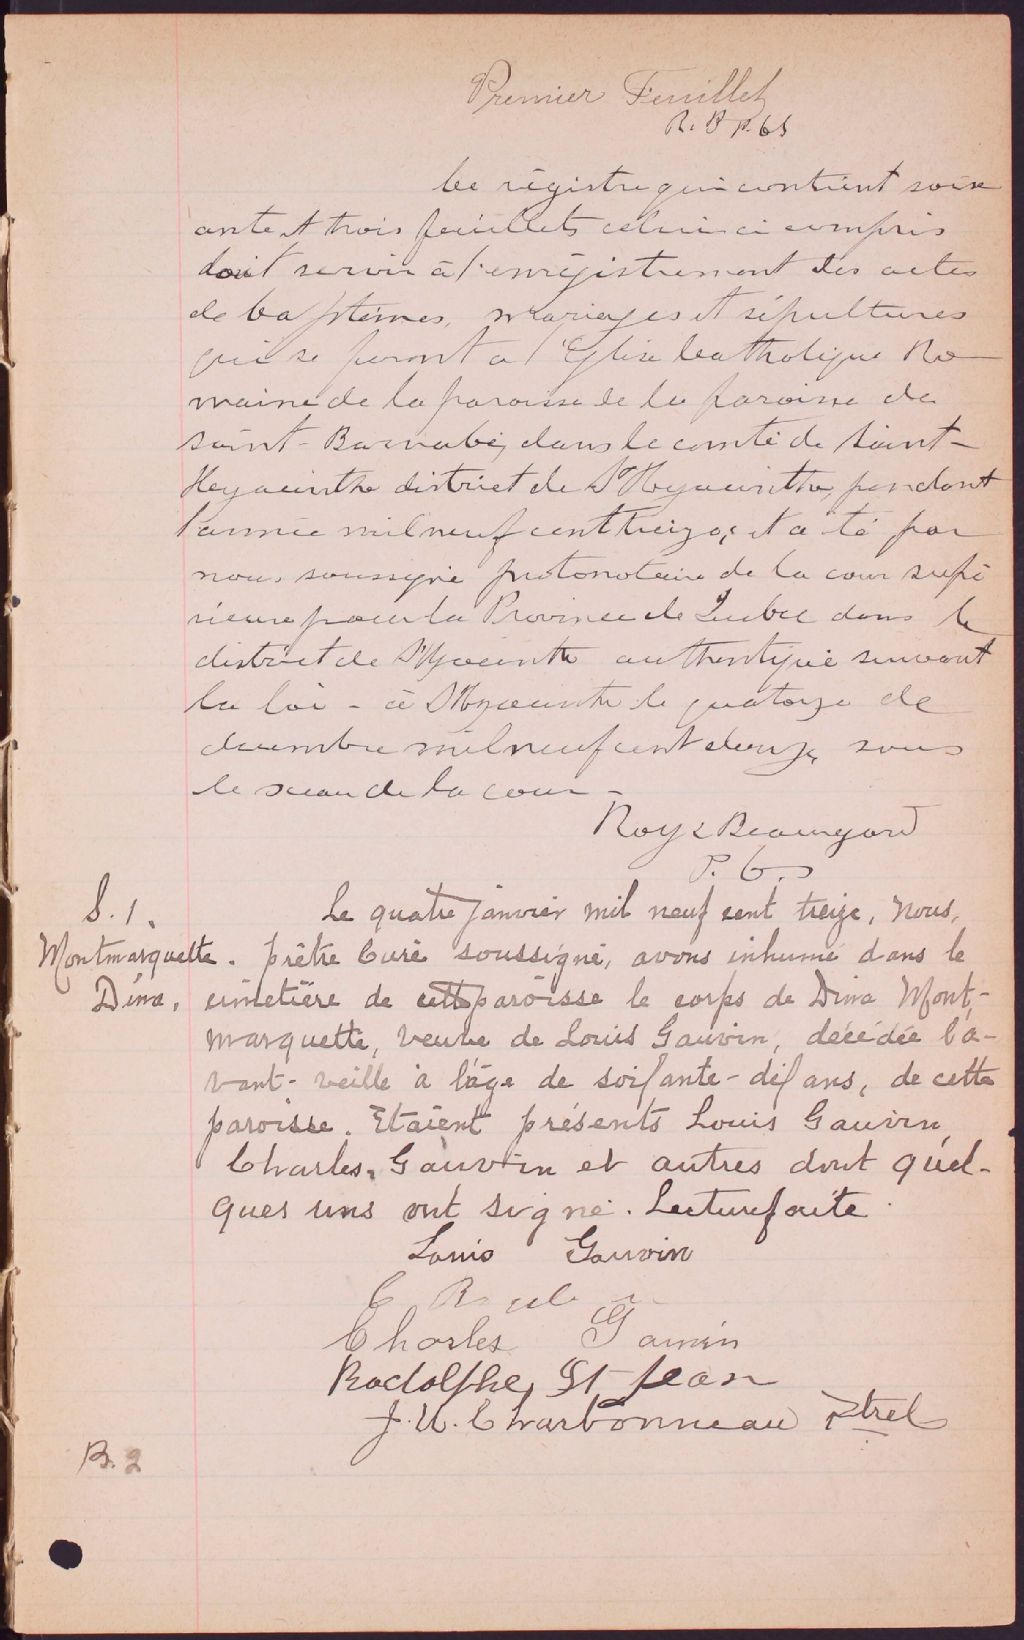 Premier Feuillet
R. & B p.c.s
Ce régistre qui contient soix
ante et trois feuillets celui ci compris
doit servir à l'enrégistrement des actes
de baptêmes, mariages et sépultures
qui se feront a l'Eglise Catholique Ro
maine de la paroisse de la paroisse de
saint-Barnabé, dans le comté de Saint-
Hyacinthe district de St Hyacinthe, pendant
l'année mil neuf cent treize, et a été par
nous soussigné protonotaire de la cour supé
rieure pour la Province de Quebec dans le
district de St Hyacinthe authentiqué suivant
la loi - à St Hyacinthe le quatorze de
décembre mil neuf cent douze sous
le sceau de la cour -
Roy & Beauregard
P. C. S
S. 1.
Montmarquette.
Dina.
Le quatre janvier mil neuf cent treize, Nous,
prêtre Curé soussigné, avons inhumé dans le
cimetière de cette paroisse le corps de Dina Mont-
marquette, veuve de Louis Gauvin, décédée l'a-
vant-veille à l'âge de soixante-dix ans, de cette
paroisse. Etaient présents Louis Gauvin,
Charles Gauvin et autres dont quel-
ques uns ont signé. Lecture faite.
Louis Gauvin
Charles Gauvin
Rodolphe St-Jean
J. U. Charbonneau Ptre
B. 2